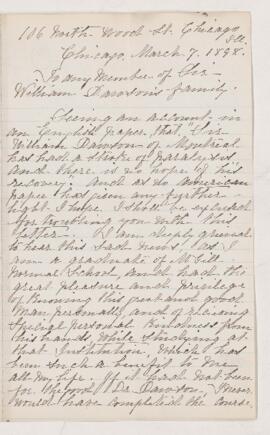 106 North Wood St. Chicago
Ill.
Chicago, March 7, 1898.
To any Member of Sir
William Dawson's family.
Seeing an account in
an English paper, that "Sir
William Dawson of Montreal
has had a stroke of paralysis
and there is no hope of his
recovery. And as no American
paper has given any further
light. I hope I shall be excused
for troubling you with this
letter. I am deeply grieved
to hear this sad news, as I
am a graduate of McGill
Normal School, and had the
great pleasure and privilege
of knowing this great and good
man personally, and of receiving
special personal kindness from
his hands while studying at
that Institution, which has
been such a benefit to me
all my life. If it had not been
for the good Dr. Dawson, I never
would have completed the course